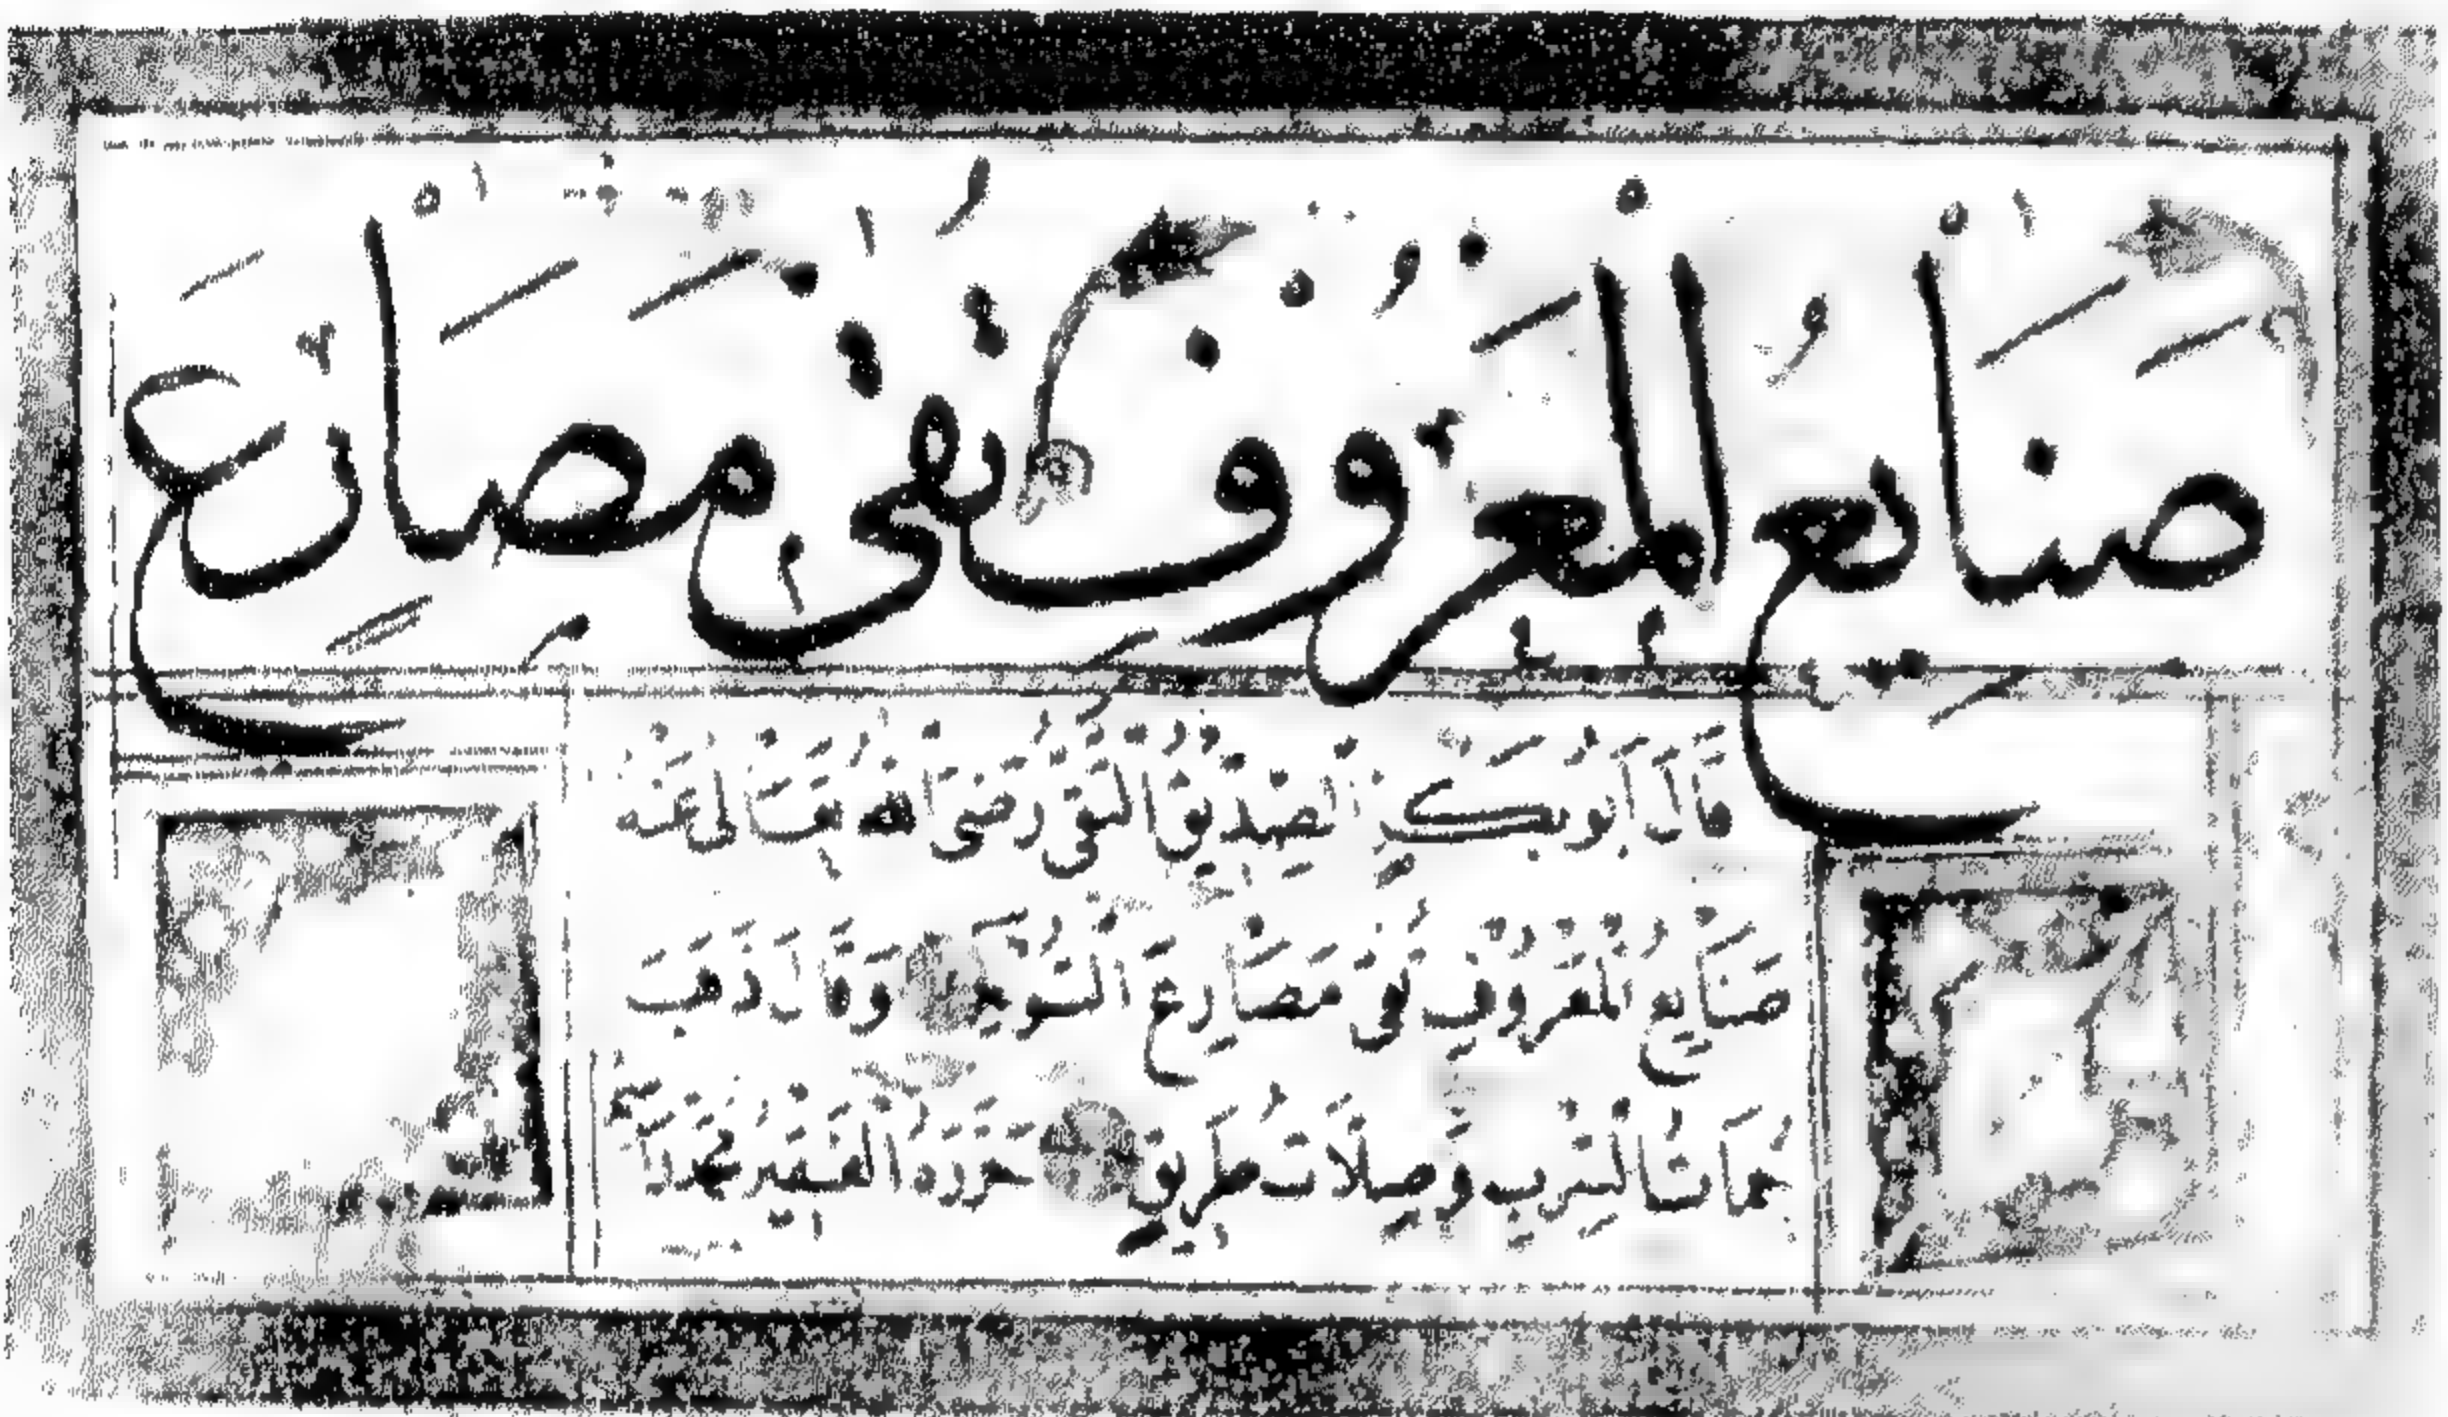 صَنَايِعُ الْمَعْرُوفِ تَقِي مَصَارِعَ
قَالَ أَبُو بَكْرٍ الصِّدِّيقُ التَّقِيُّ رَضِيَ اللهُ تَعَالَى عَنْهُ
صَنَايِعُ الْمَعْرُوفِ تَقِي مَصَارِعَ السُّوءِ وَقَالَ ذَهَبَ
وَصِلَاتُ طَرِيقٍ حَرَّرَهُ الْفَقِيرُ مُحَمَّد